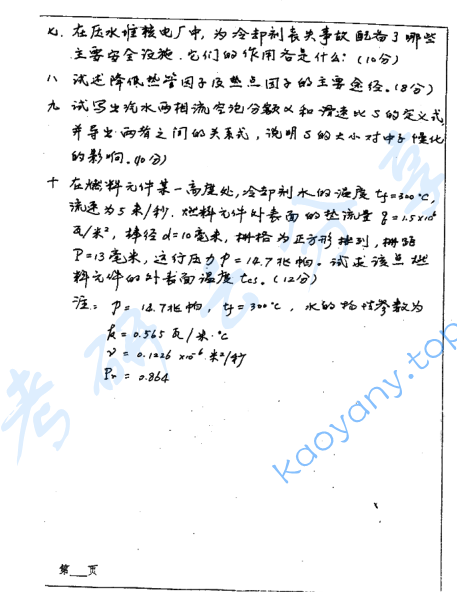 七. 在压水堆核电厂中, 为冷却剂丧失事故配备了哪些
主要安全设施. 它们的作用各是什么? (10分)
八、试述降低热管因子及热点因子的主要途径. (8分)
九 试写出汽水两相流空泡分额α和滑速比S的定义式,
并导出两者之间的关系式, 说明S的大小对中子慢化
的影响. (10分)
十 在燃料元件某一高度处, 冷却剂水的温度 tf=300℃,
流速为5米/秒. 燃料元件外表面的热流量 q=1.5×10⁶
瓦/米², 棒径 d=10毫米, 栅格为正方形排列, 栅距
P=13毫米, 运行压力 P=14.7兆帕。试求该点燃
料元件的外表面温度 tcs. (12分)
注: P=14.7兆帕, tf=300℃, 水的物性参数为
k=0.565 瓦/米·℃
ν=0.1226 ×10⁻⁶ 米²/秒
Pr=0.864
第__页
考研云分享
kaoyany.top